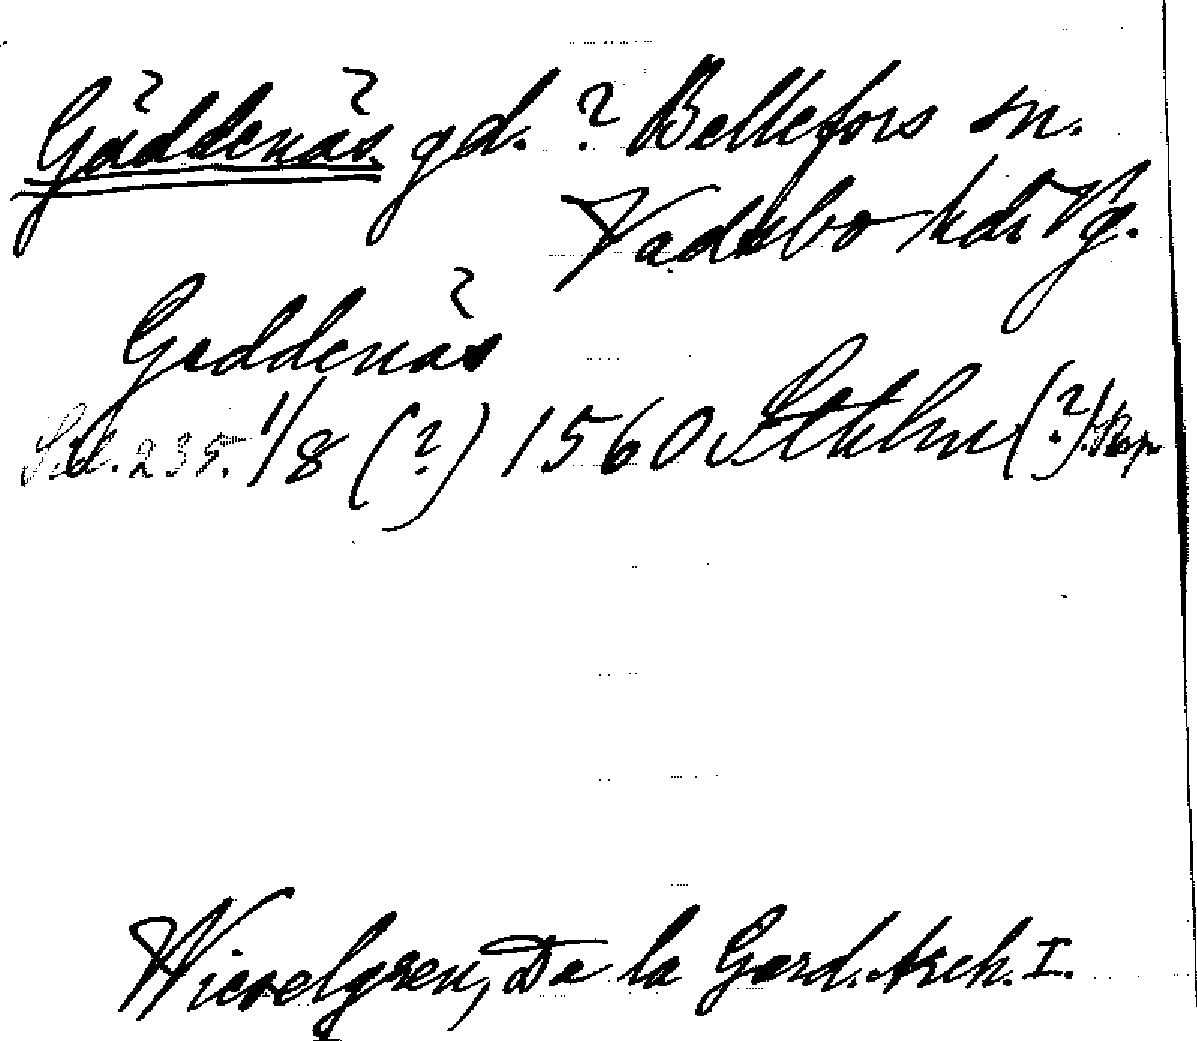 Gäddenäs gd. ? Bellefors sn.
Vadsbo hdr Vg.
Geddenäs
Sid. 235. 1/8 (?) 1560 Sthlm (?)
Wieselgren, De la Gard. Arch. I.